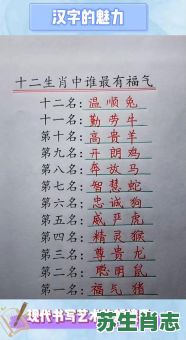 汉字的魅力
十二生肖中谁最有福气
十二名：温顺兔
十一名：勤劳牛
第十名：高贵羊
第九名：开朗鸡
第八名：奔放马
第七名：智慧蛇
第六名：忠诚狗
第五名：威严虎
第四名：精灵猴
第三名：尊贵龙
第二名：聪明鼠
第一名：福气猪
现代书写艺术
苏生肖志